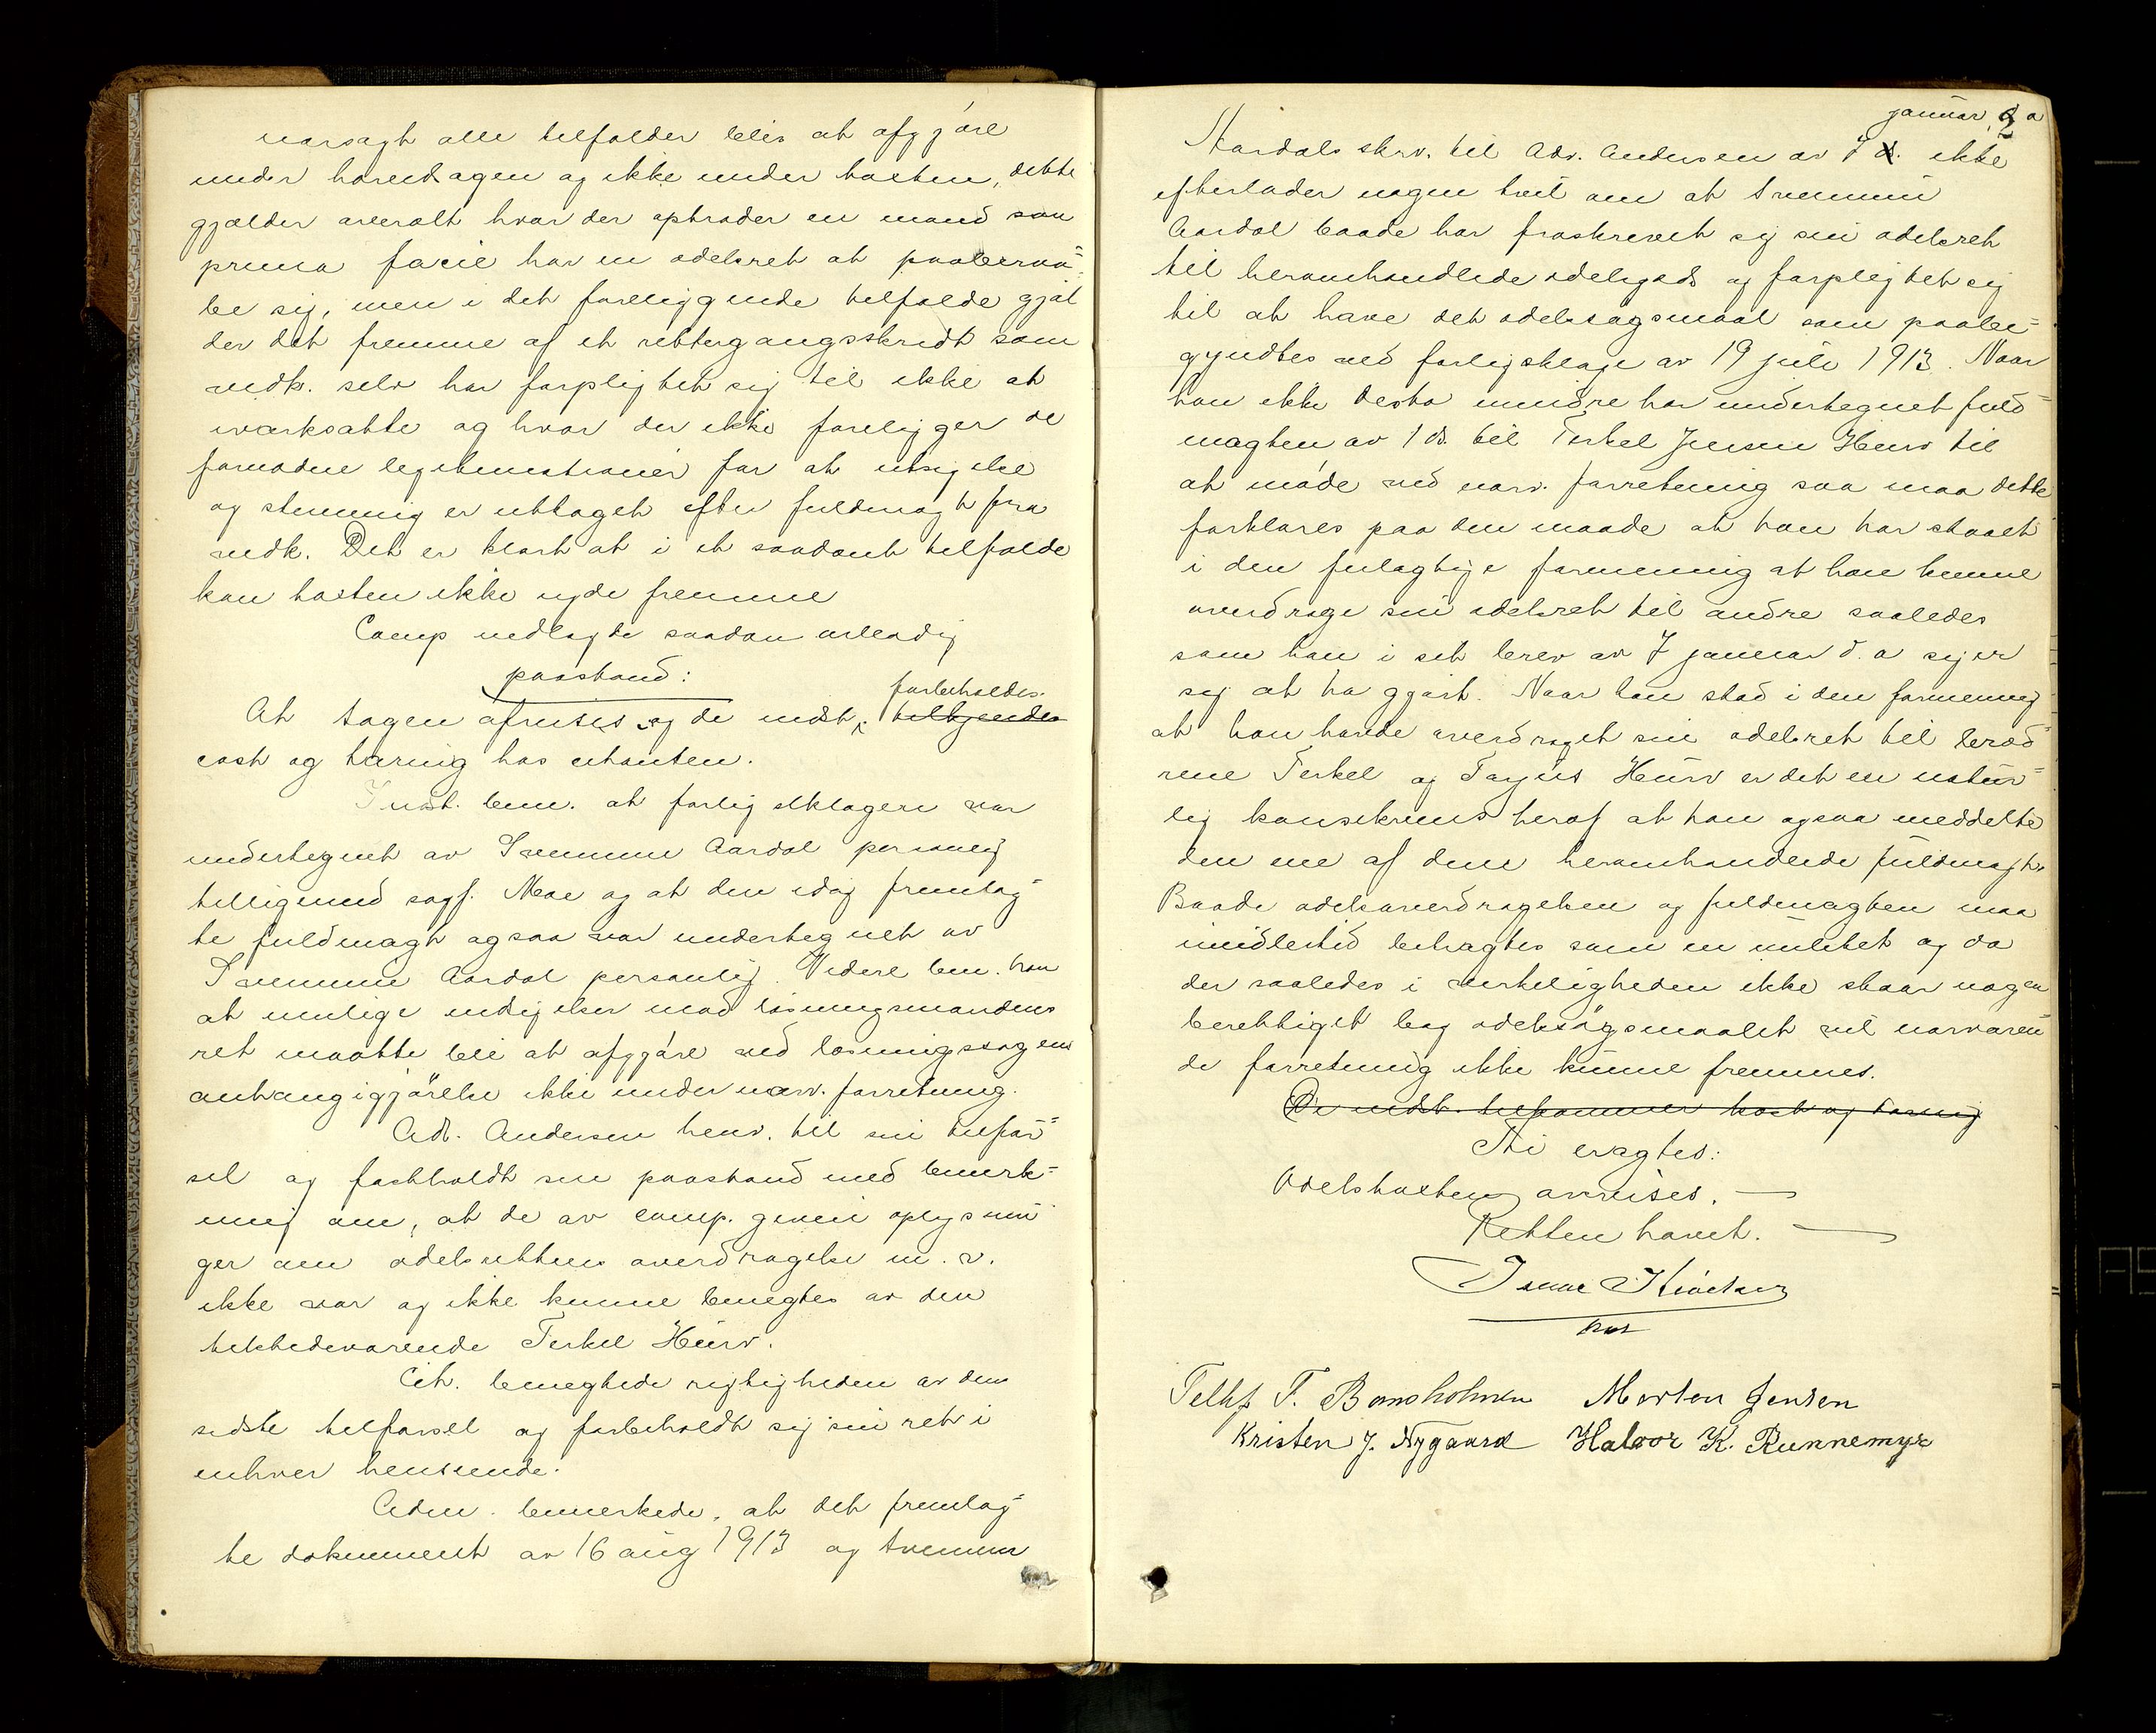 uorsagt alle tilfælder blir at afgjøre
under hovedsagen og ikke under taxten, dette
gjælder overalt hvor der optræder en mand som
prima facie har en odelsret at paaberaa-
be sig, men i det foreliggende tilfælde gjæl
der det fremme af et rettergangsskridt som
vedk. selv har forpligtet sig til ikke at
iværksætte og hvor der ikke foreligger de
fornødne legitimationer for at utsigelse
og stevning er uttaget efter fuldmagt fra
vedk. Det er klart at i et saadant tilfælde
kan taxten ikke nyde fremme
Comp nedlagde saadan ærbødig
paastand:
At sagen afvises og de indst. forbeholdes tilkjendes
cost og tæring hos citanten.
Indst. bem. at forligsklagen var
undertegnet av Svennum Aardal personlig
tilligemed sagf. Moe og at den idag fremlag-
te fuldmagt ogsaa var undertegnet av
Svennum Aardal personlig. Videre bem. han
at mulige indsigelser mod løsningsmandens
ret maatte bli at afgjøre ved løsningssagens
anhængiggjørelse ikke under nærv. forretning.
Adv. Andersen henv. til sin tilfør-
sel og fastholdt sin paastand med bemerk-
ning om, at de av comp. given oplysnin
ger om odelsrettens overdragelse m. v.
ikke var og ikke kunne benegtes av den
tilstedeværende Terkel Hurv.
Cit. benegtede rigtigheden av den
sidste tilførsel og forbeholdt sig sin ret i
enhver henseende.
Adm. bemerkede, at det fremlag-
te dokument av 16 aug 1913 og Svennum
januar d a
Aardals skrv. til Adv. Andersen av 7 d. ikke
efterlader nogen tvil om at Svennum
Aardal baade har fraskrevet sig sin odelsret
til heromhandlede odelsgods og forpligtet sig
til at hæve det odelssøgsmaal som paabe-
gyndtes ved forligsklage av 19 juli 1913. Naar
han ikke desto mindre har undertegnet fuld-
magten av 1 ds. til Terkel Jensen Hurv til
at møde ved nærv. forretning saa maa dette
forklares paa den maade at han har staaet
i den feilagtige formening at han kunne
overdrage sin odelsret til andre saaledes
som han i sit brev av 7 januar d. a siger
sig at ha gjort. Naar han stod i den formening
at han havde overdraget sin odelsret til brød-
rene Terkel og Tarjus Hurv er det en natur-
lig konsekvens heraf at han ogsaa meddelte
den ene af dem heromhandlede fuldmagt.
Baade odelsoverdragelsen og fuldmagten maa
imidlertid betragtes som en nullitet og da
der saaledes i virkeligheden ikke staar nogen
berettiget bag odelssøgsmaalet vil nærværen
de forretning ikke kunne fremmes.
De indst. tilkommer kost og tæring
Thi eragtes:
Odelstaxten avvises.
Retten hævet.
Telhf T. Bomsholmen Morten Jensen
Kristen J. Nygaard Halvor K. Runnemyr